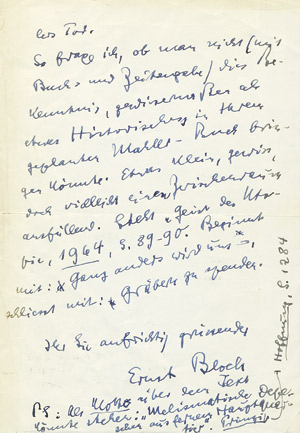 los Tod.
So frage ich, ob man nicht (mit
Buch- und Zeitangabe) dies Be-
kenntnis, gewissermaßen als
etwas Historisches in Ihrem
geplanten Mahler-Buch brin-
gen könnte. Etwas klein, gewiss,
doch vielleicht einen Zwischenraum
ausfüllend. Steht "Geist der Uto-
pie, 1964, S. 89-90. Beginnt
mit: "Ganz anders wird uns",
schliesst mit: "Gräbern zu spenden.
Ihr Sie aufrichtig grüssender
Ernst Bloch
PS: Als Motto über dem Text
könnte stehen: "Melismatische
schen aus ferner
für". Prinzip
Hoffnung, S. 1284